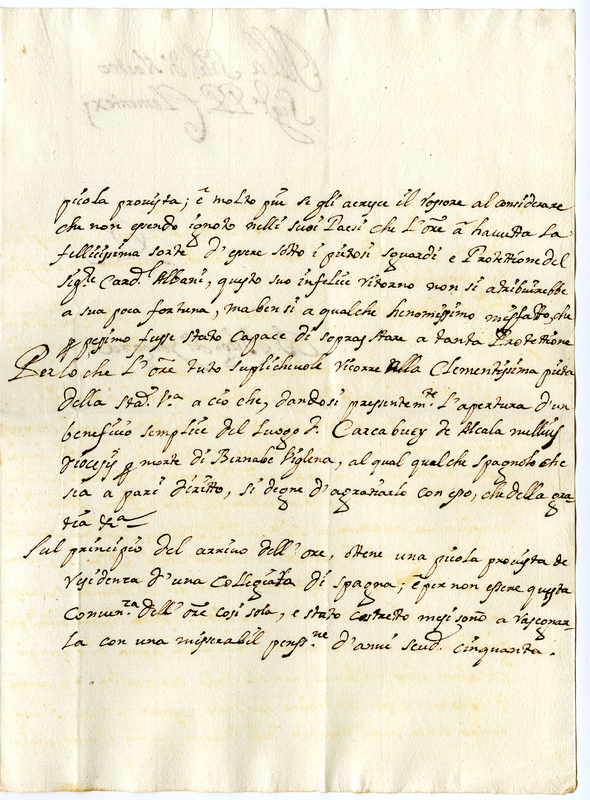 Alla S.tà di N̄ro
Sig.re PP. Clemente xj
picola provista; è molto piu se gli acresce il rossore al considerare
che non essendo ignoto nelli suoi Paesi che L'ōre à havutta La
fellicissima sorte d'essere sotto i pietosi sguardi e Protettione del
Sig.re Card.l Albani, questo suo infelice ritorno non si atribuirebbe
a sua poca fortuna, ma bensi a qualche henormissimo misfatto, che
ꝑ pesimo fusse stato capace di soprastare a tanta Protettione
Perlo che L'ōre tuto suplichevole ricorre alla Clementissima pieta
della S.tà V.ra a ciò che, dandosi presentem.te L'apertura d'un
beneficio semplice del Luogo d. Carcabuey de Alcala nullius
Diocesis ꝑ morte di Bernabe Viglena, al qual qualche spagnolo che
sia a pari diritto, si degne d'agratiarlo con esso, che della gra-
tia &a
Sul principio del arrivo dell'ōre, ottene una picola provista de
Residenza d'una Collegiata di Spagna; è per non essere questa
Conven.za dell'ōre cosi sola, e stato costretto mesi sono a rasegnar-
La con una misserabil pens.ne d'anui scud. cinquanta.